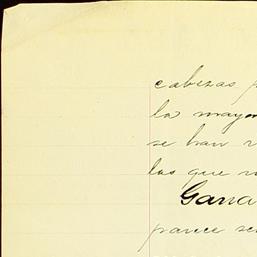 cabezas p
la mayor
se han r
las que n
Gana
parece se